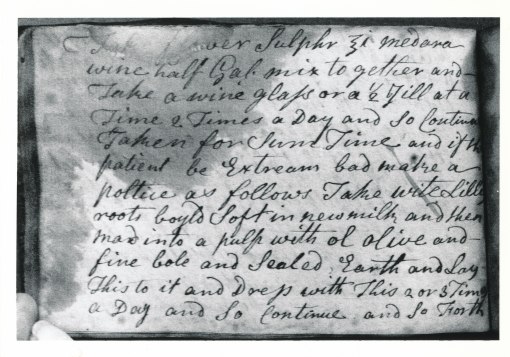 Take flower Sulphr ℥i medara
wine half Gal mix to gether and
Take a wine glass or a ½ Gill at a
Time 2 Times a Day and so Continue
Taken for Sum Time and if the
patient be Extream bad make a
poltice as follows Take wite Lilly
roots boyld Soft in new milk and then
mad into a pulp with ol olive and
fine bole and Sealed Earth and Lay
This to it and Dress with This 2 or 3 Times
a Day and So Continue and So Forth